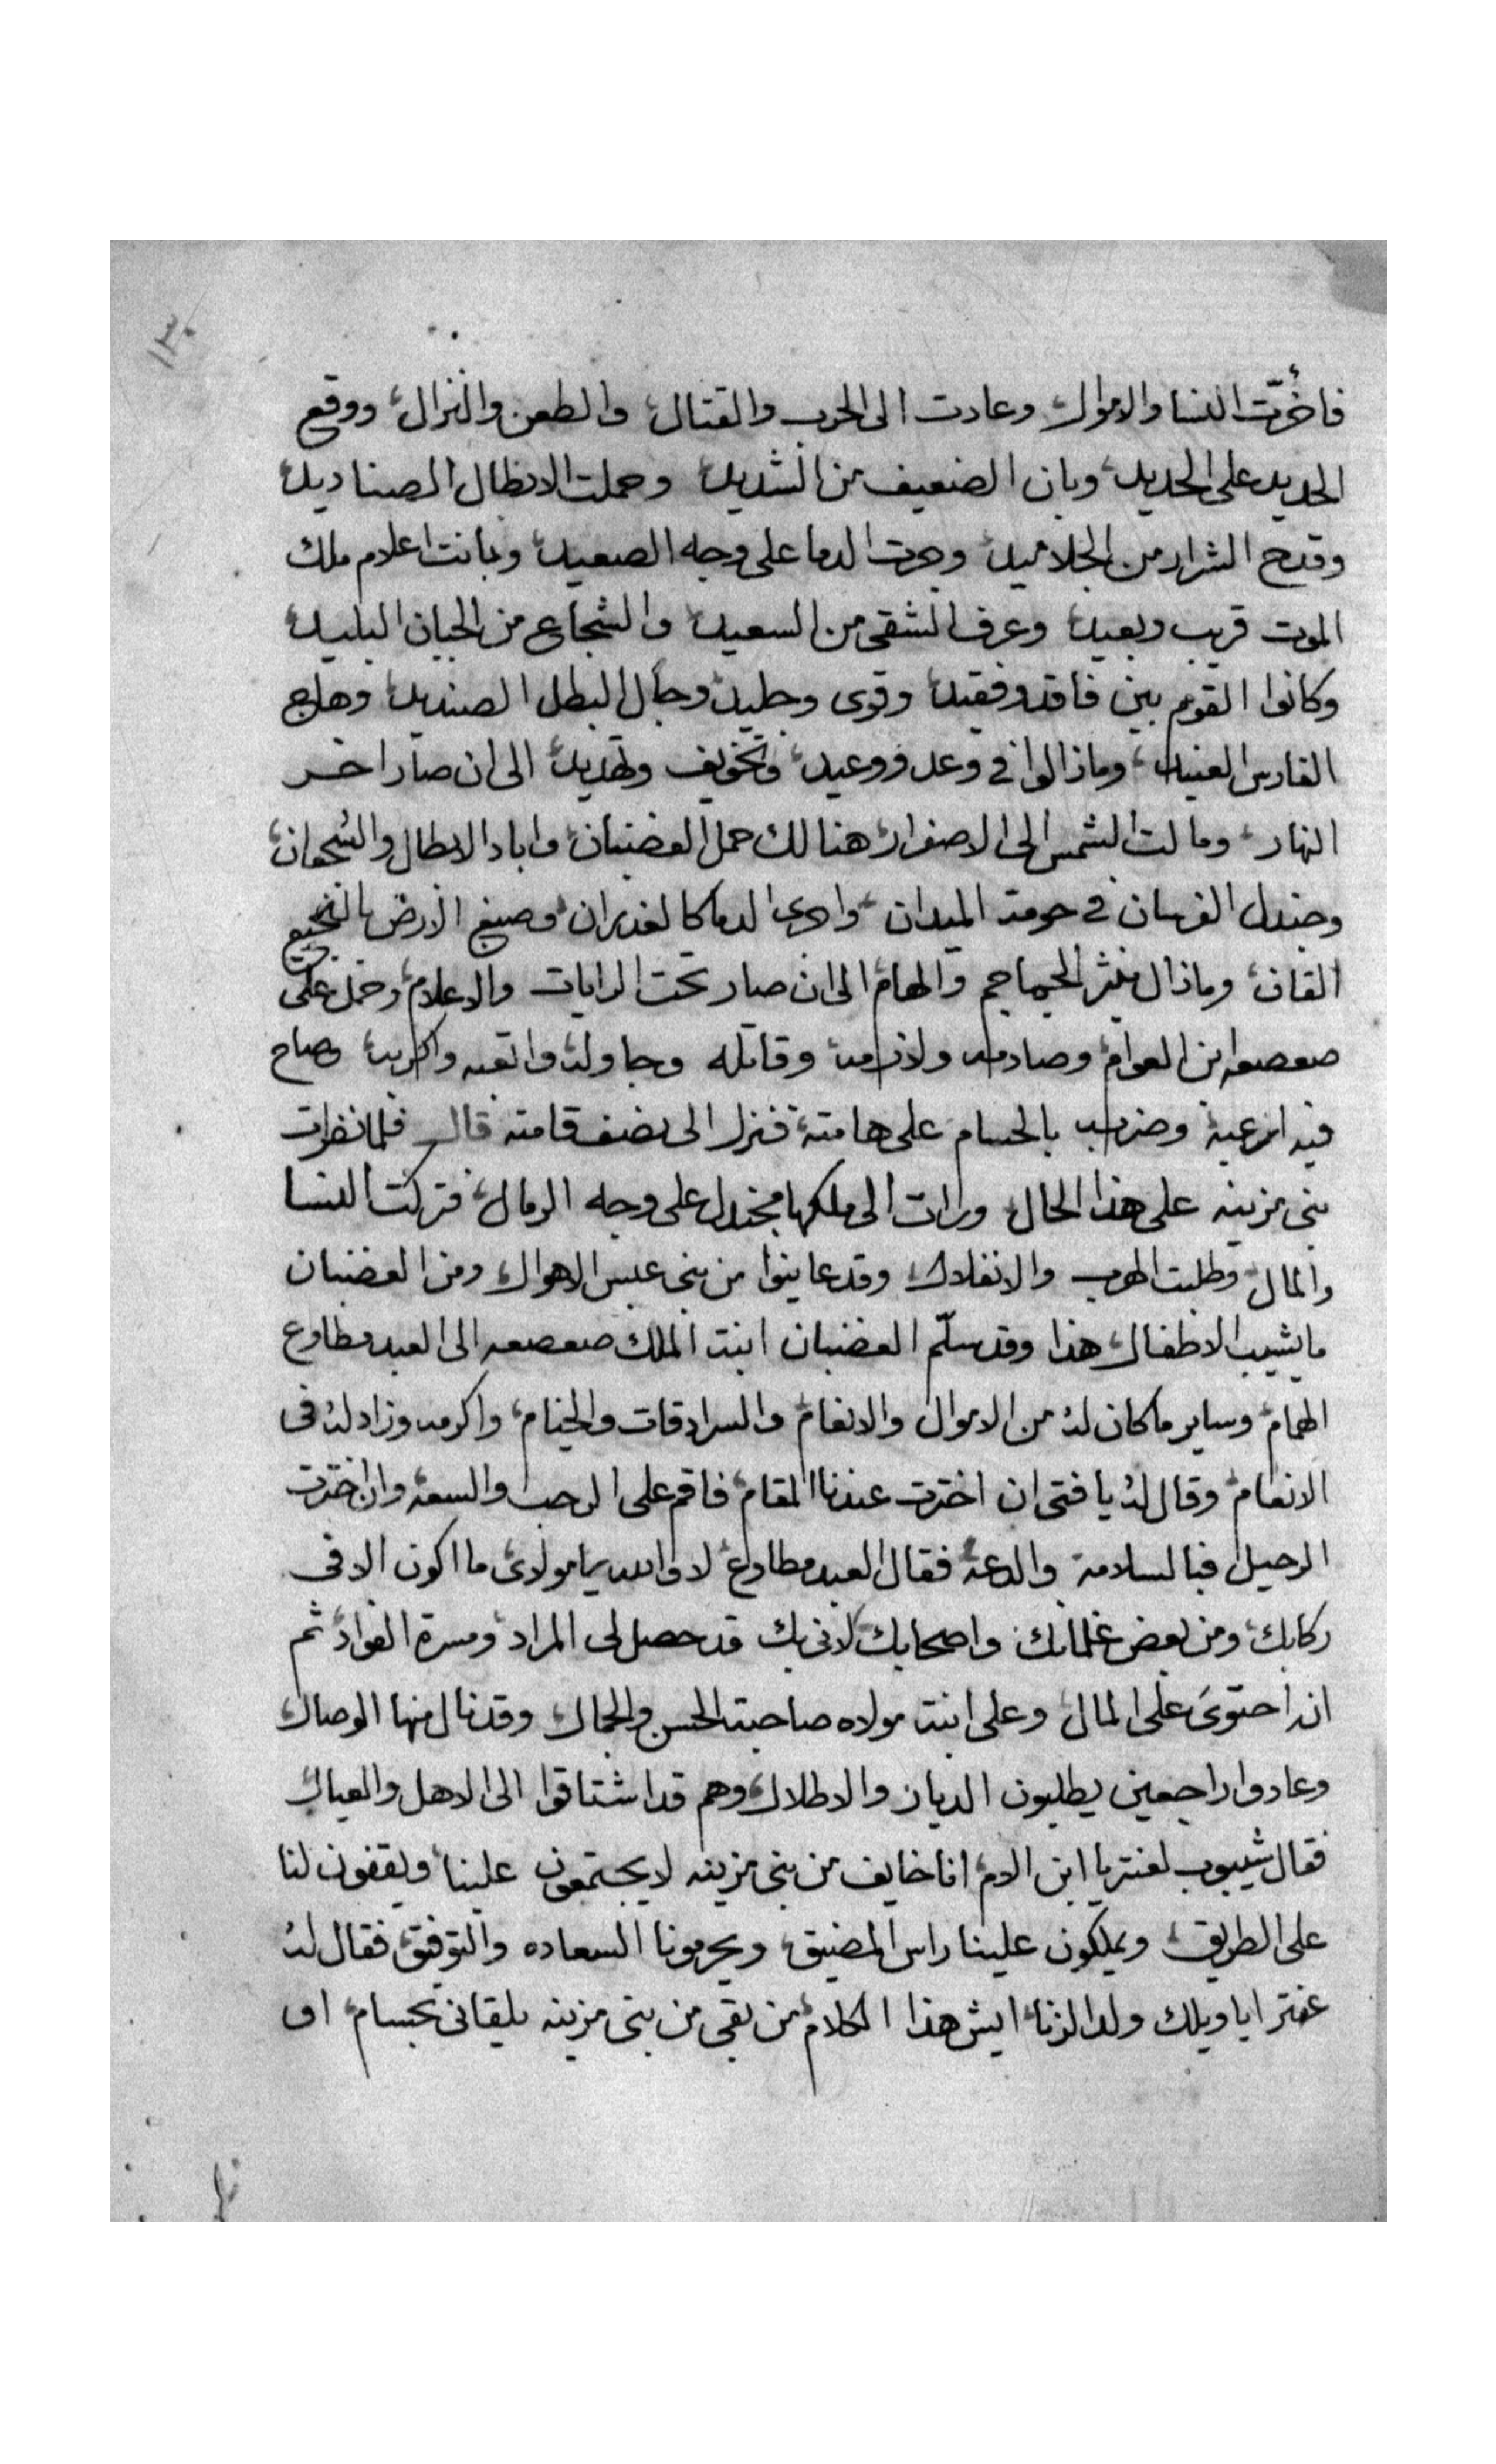 ١٣٠
فاخُرّت النسا والاموال وعادت الى الحرب والقتال والطعن والنزال ووقع
الحديد على الحديد وبان الضعيف من الشديد وحملت الابطال الصناديد
وقدح الشرار من الجلاميد وجرت الدما على وجه الصعيد وبانت اعلام ملك
الموت قريب وبعيد وعرف الشقى من السعيد والشجاع من الجبان البليد
وكانوا القوم بين فاقد وفقيد وقوى وجليد وجال البطل الصنديد وهاج
الفارس العنيد ومازالوا في وعد ووعيد وتخويف وتهديد الى ان صار اخر
النهار ومالت الشمس الى الاصفرار هنالك حمل الغضبان واباد الابطال والشجعان
وجندل الفرسان في حومة الميدان واجرى الدما كالغدران وصبغ الارض بالنجيع
القان ومازال ينثر الجماجم والهام الى ان صار تحت الرايات والاعلام وحمل على
صعصعه ابن العوام وصادمه ولازمه وقاتله وجاوله واتعبه واكربه وصاح
فيه ارعبه وضربه بالحسام على هامته فنزل الى نصف قامته قال فلما نظرت
بنى مزينه على هذا الحال ورات الى ملكها مجندل على وجه الرمال فتركت النسا
والمال وطلبت الهرب والانفلال وقد عاينوا من بنى عبس الاهوال ومن الغضبان
ما يشيب الاطفال هذا وقد سلّم الغضبان ابنت الملك صعصعه الى العبد مطاوع
الهمام وساير ما كان له من الاموال والانعام والسرادقات والخيام واكرمه وزاد له في
الانعام وقال له يا فتى ان اخترت عندنا المقام فاقم على الرحب والسعة وان اخترت
الرحيل فبالسلامة والدعة فقال العبد مطاوع لا والله يا مولاى ما اكون الا في
ركابك ومن بعض غلمانك واصحابك لانى بك قد حصل لى المراد ومسرة الفواد ثم
انه احتوى على المال وعلى ابنة مولاه صاحبة الحسن والجمال وقد نال منها الوصال
وعادوا راجعين يطلبون الديار والاطلال وهم قد اشتاقوا الى الاهل والعيال
فقال شيبوب لعنتر يا ابن الام انا خايف من بنى مزينه لا يجتمعون علينا ويقفون لنا
على الطريق ويملكون علينا راس المضيق ويحرمونا السعاده والتوفيق فقال له
عنتر ايا ويلك ولد الزنا ايش هذا الكلام من بقى من بنى مزينه يلقانى بحسام او